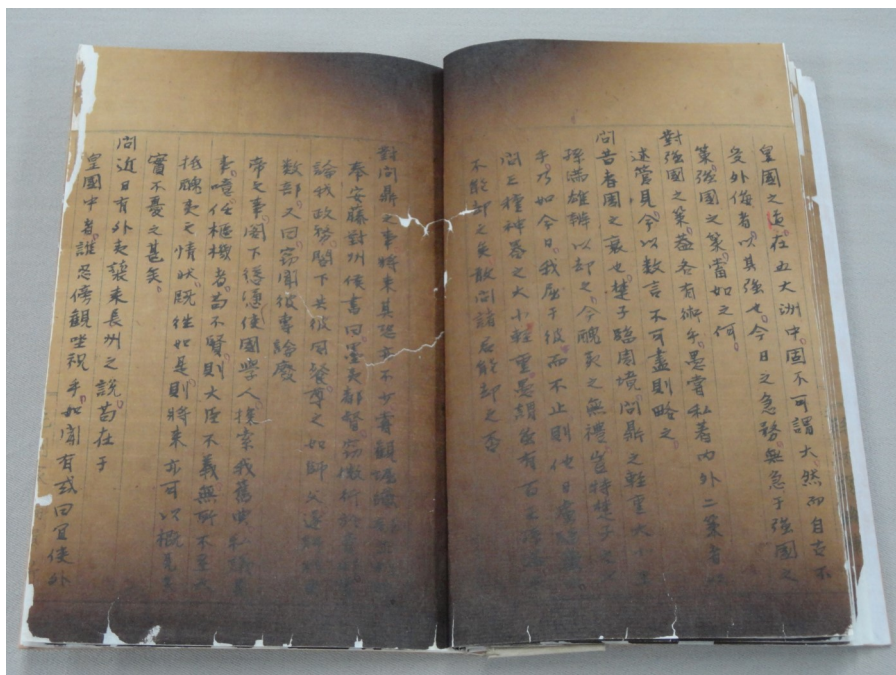 皇國之造在五大洲中固不可謂大然而自古不
受外侮者以其強也今日之急務無急于強國之
策強國之策當如之何
對強國之策蓋各有術乎愚嘗私著內外二策者
述管見今以數言不可盡則略之
問昔者周之衰也楚子臨周境問鼎之輕重大小
孫滿雄辨以却之今醜夷之無禮豈特楚子之
乎乃如今日我屈于彼而不止則他日
問三種神器之大小輕重愚謂
不能却之矣敢問諸君能却之否
對問鼎之事將來其恐亦不少嘗觀
奉安藤對州侯書曰墨夷都督
論我政務閣下共彼同餐尊之如師父
數部又曰竊聞彼專論廢
帝之事閣下慫慂使國學人探索我舊典
書噫任樞機者苟不賢則大臣不義無所不至
拒醜夷之情狀既往如是則將來亦可以概
實不憂之甚矣
問近日有外夷襲來長州之說苟在于
皇國中者誰忍傍觀坐視乎如聞有或曰宜使外